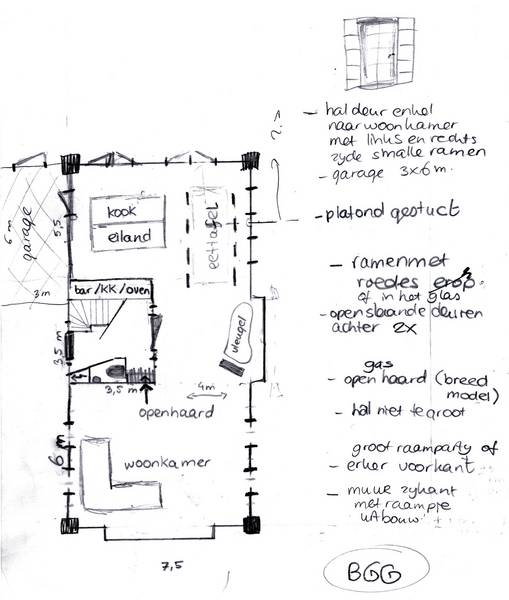 - hal deur enkel
naar woonkamer
met links en rechts
zyde smalle ramen
- garage 3x6 m.
- plafond gestuct
- ramen met
roedes erop
of in het glas
- openslaande deuren
achter 2x
gas
- open haard (breed
model)
- hal niet te groot
groot raamparty of
- erker voorkant
- muur zykant
met raampje
uitbouw
BGG
?
6 m
garage
3 m
5,5
kook
eiland
eettafel
bar/KK/oven
3,5 m
3,5 m
vleugel
4m
openhaard
6 m
woonkamer
7,5